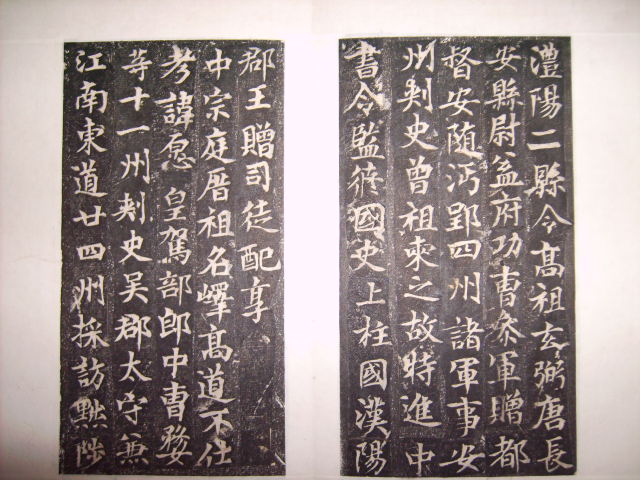 澧陽二縣令高祖玄弼唐長
安縣尉益府功曹叅軍贈都
督安随沔郢四州諸軍事安
州刾史曾祖柬之故特進中
書令監修國史上柱國漢陽
郡王贈司徒配享
中宗庭厝祖名嶧髙道不仕
考諱愿皇駕部郎中曹婺
等十一州刾史吴郡太守兼
江南東道廿四州採訪黜陟